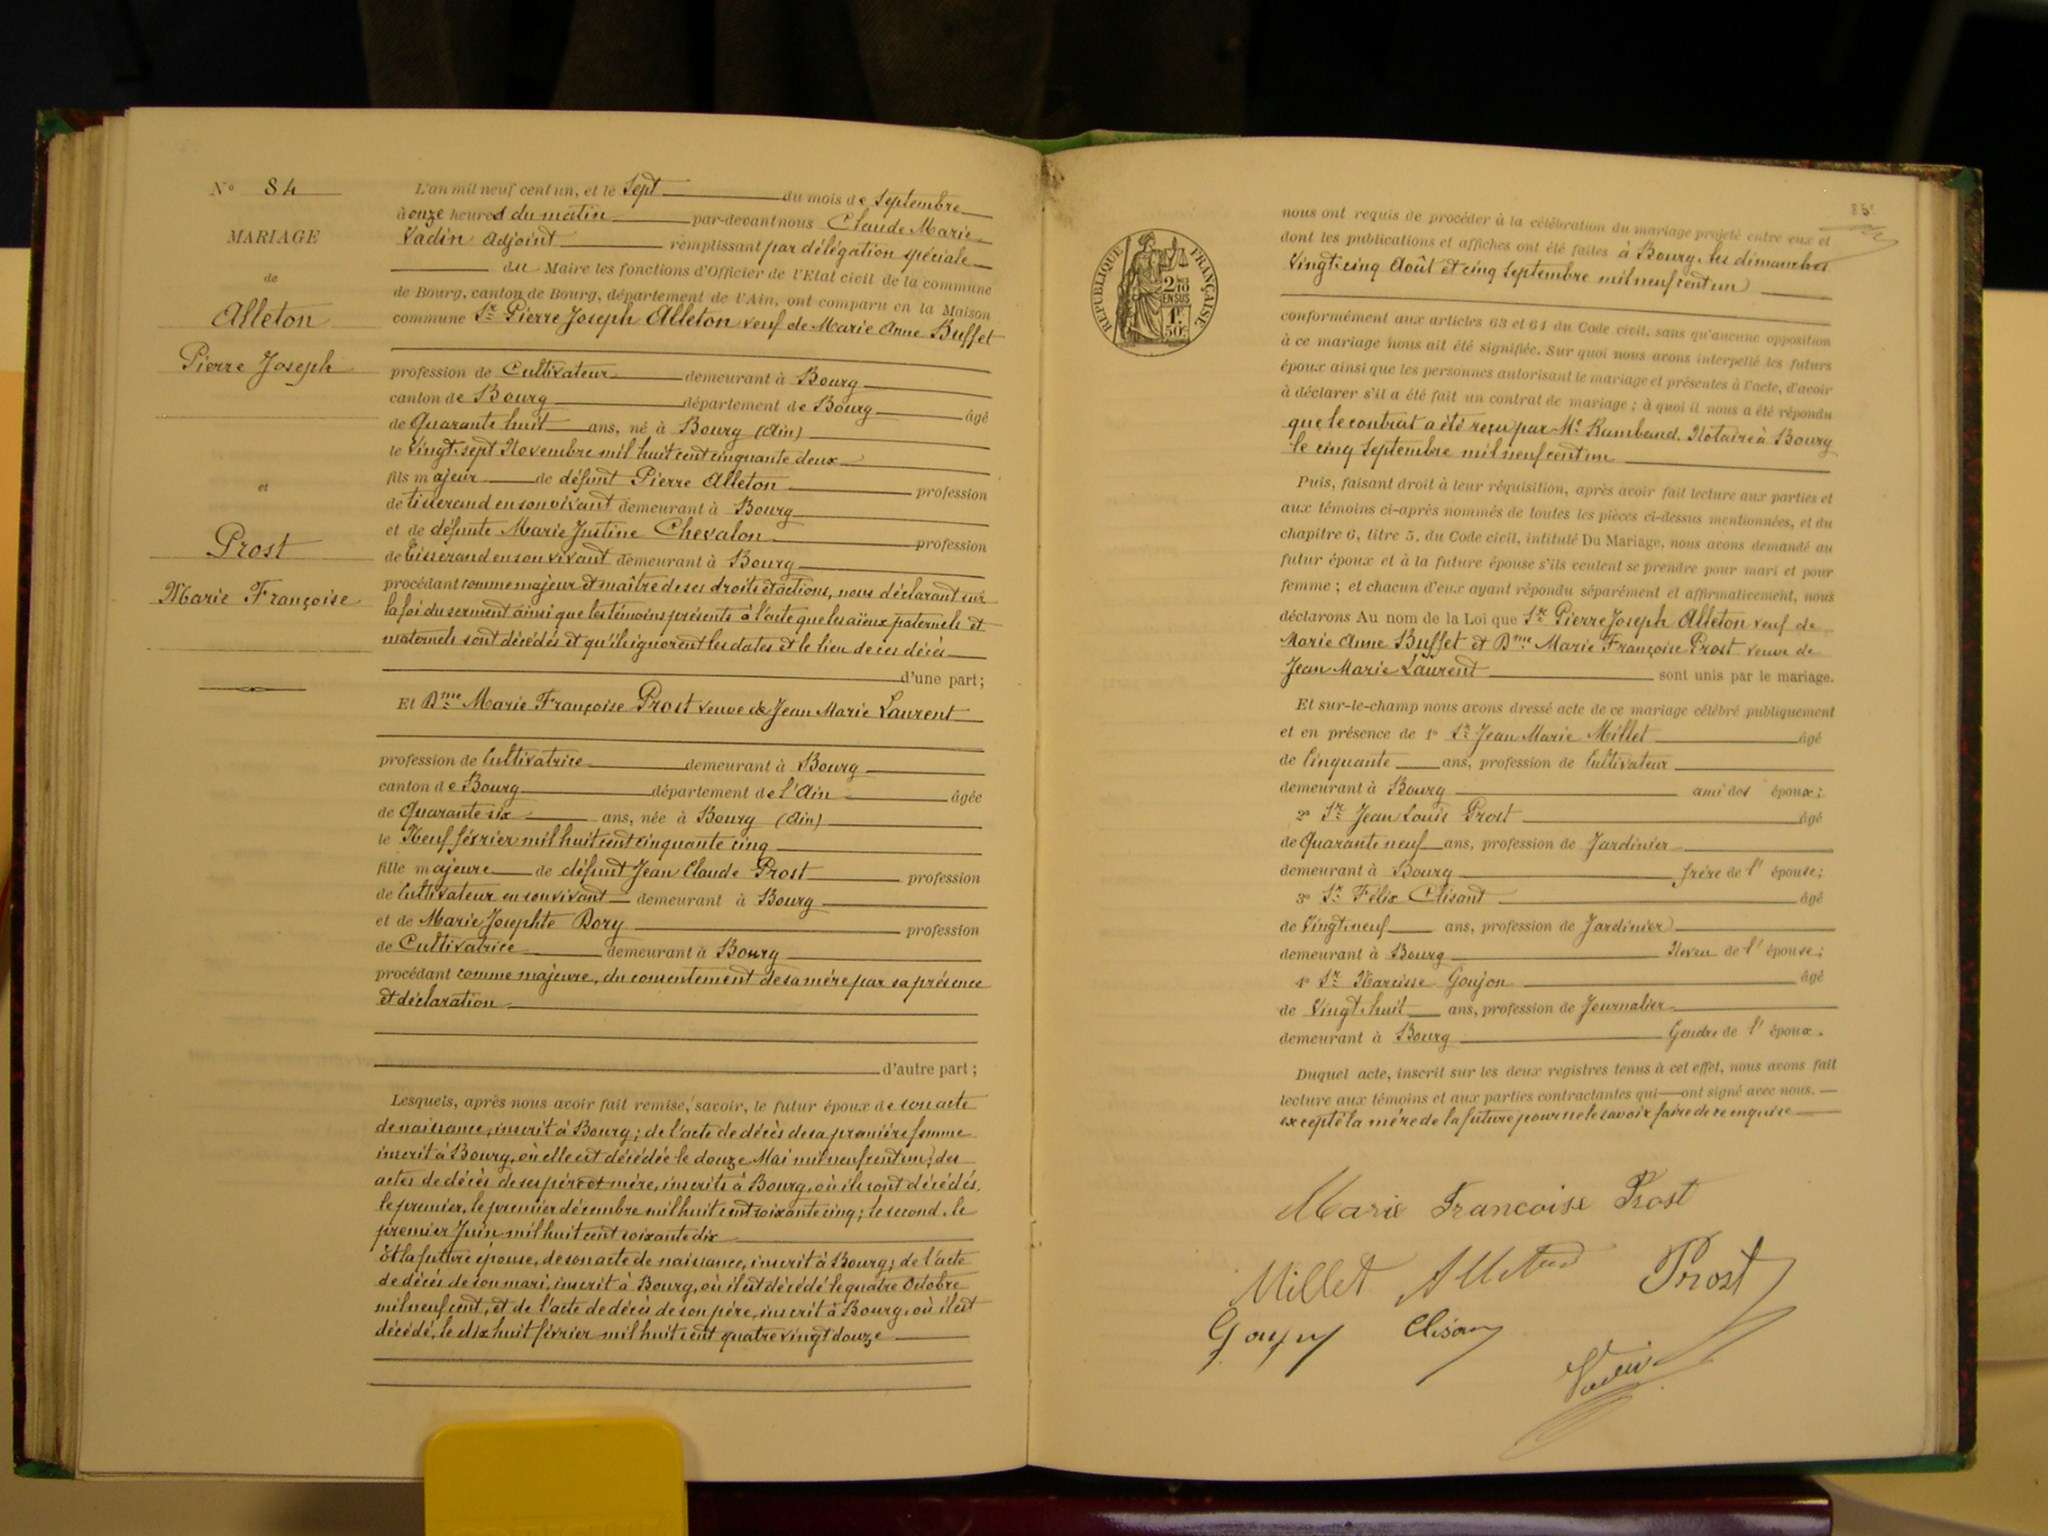 N° 84
MARIAGE
de
Alleton
Pierre Joseph
et
Prost
Marie Françoise
L'an mil neuf cent un, et le Sept du mois de Septembre
à onze heures du matin par-devant nous Claude Marie
Vadin Adjoint remplissant par délégation spéciale
du Maire les fonctions d'Officier de l'Etat civil de la commune
de Bourg, canton de Bourg, département de l'Ain, ont comparu en la Maison
commune Sr Pierre Joseph Alleton veuf de Marie Anne Buffet
profession de Cultivateur demeurant à Bourg
canton de Bourg département de Bourg âgé
de Quarante huit ans, né à Bourg (Ain)
le Vingt-sept Novembre mil huit cent cinquante deux
fils majeur de défunt Pierre Alleton profession
de tisserand en son vivant demeurant à Bourg
et de défunte Marie Justine Chevalon profession
de Tisserand en son vivant demeurant à Bourg
procédant comme majeur et maître de ses droits et actions, nous déclarant sur
la foi du serment ainsi que les témoins présents à l'acte que les aïeux paternels et
maternels sont décédés et qu'ils ignorent les dates et le lieu de ces décès
d'une part;
Et Dme Marie Françoise Prost veuve de Jean Marie Laurent
profession de Cultivatrice demeurant à Bourg
canton de Bourg département de l'Ain âgée
de Quarante six ans, née à Bourg (Ain)
le Neuf février mil huit cent cinquante cinq
fille majeure de défunt Jean Claude Prost profession
de Cultivateur en son vivant demeurant à Bourg
et de Marie Josephte Dory profession
de Cultivatrice demeurant à Bourg
procédant comme majeure, du consentement de sa mère par sa présence
et déclaration
d'autre part;
Lesquels, après nous avoir fait remise, savoir, le futur époux de son acte
de naissance, inscrit à Bourg; de l'acte de décès de sa première femme
inscrit à Bourg, où elle est décédée le douze Mai mil neuf cent un; des
actes de décès de ses père et mère, inscrits à Bourg, où ils sont décédés,
le premier, le premier décembre mil huit cent soixante cinq; le second, le
premier Juin mil huit cent soixante dix
Et la future épouse, de son acte de naissance, inscrit à Bourg; de l'acte
de décès de son mari, inscrit à Bourg, où il est décédé le quatre Octobre
mil neuf cent, et de l'acte de décès de son père, inscrit à Bourg, où il est
décédé, le dix huit février mil huit cent quatre vingt douze
REPUBLIQUE FRANÇAISE
2 10
EN SUS
1F
50c
nous ont requis de procéder à la célébration du mariage projeté entre eux et
dont les publications et affiches ont été faites à Bourg, les dimanches
Vingt-cinq Août et cinq Septembre mil neuf cent un
conformément aux articles 63 et 64 du Code civil, sans qu'aucune opposition
à ce mariage nous ait été signifiée. Sur quoi nous avons interpellé les futurs
époux ainsi que les personnes autorisant le mariage et présentes à l'acte, d'avoir
à déclarer s'il a été fait un contrat de mariage; à quoi il nous a été répondu
que le contrat a été reçu par Me Rambaud, Notaire à Bourg
le cinq Septembre mil neuf cent un
Puis, faisant droit à leur réquisition, après avoir fait lecture aux parties et
aux témoins ci-après nommés de toutes les pièces ci-dessus mentionnées, et du
chapitre 6, titre 5, du Code civil, intitulé Du Mariage, nous avons demandé au
futur époux et à la future épouse s'ils veulent se prendre pour mari et pour
femme; et chacun d'eux ayant répondu séparément et affirmativement, nous
déclarons Au nom de la Loi que Sr Pierre Joseph Alleton veuf de
Marie Anne Buffet et Dme Marie Françoise Prost veuve de
Jean Marie Laurent sont unis par le mariage.
Et sur-le-champ nous avons dressé acte de ce mariage célébré publiquement
et en présence de 1° Sr Jean Marie Millet âgé
de Cinquante ans, profession de Cultivateur
demeurant à Bourg ami des époux;
2° Sr Jean Louis Prost âgé
de Quarante neuf ans, profession de Jardinier
demeurant à Bourg frère de l'épouse;
3° Sr Félix Clisant âgé
de Vingt-neuf ans, profession de Jardinier
demeurant à Bourg Neveu de l'épouse;
4° Sr Narcisse Goujon âgé
de Vingt-huit ans, profession de Journalier
demeurant à Bourg Gendre de l'époux.
Duquel acte, inscrit sur les deux registres tenus à cet effet, nous avons fait
lecture aux témoins et aux parties contractantes qui ont signé avec nous.
excepté la mère de la future pour ne le savoir faire de ce enquise
Marie Francoise Prost
Millet Alleton Prost
Goujon Clisan
Vadin